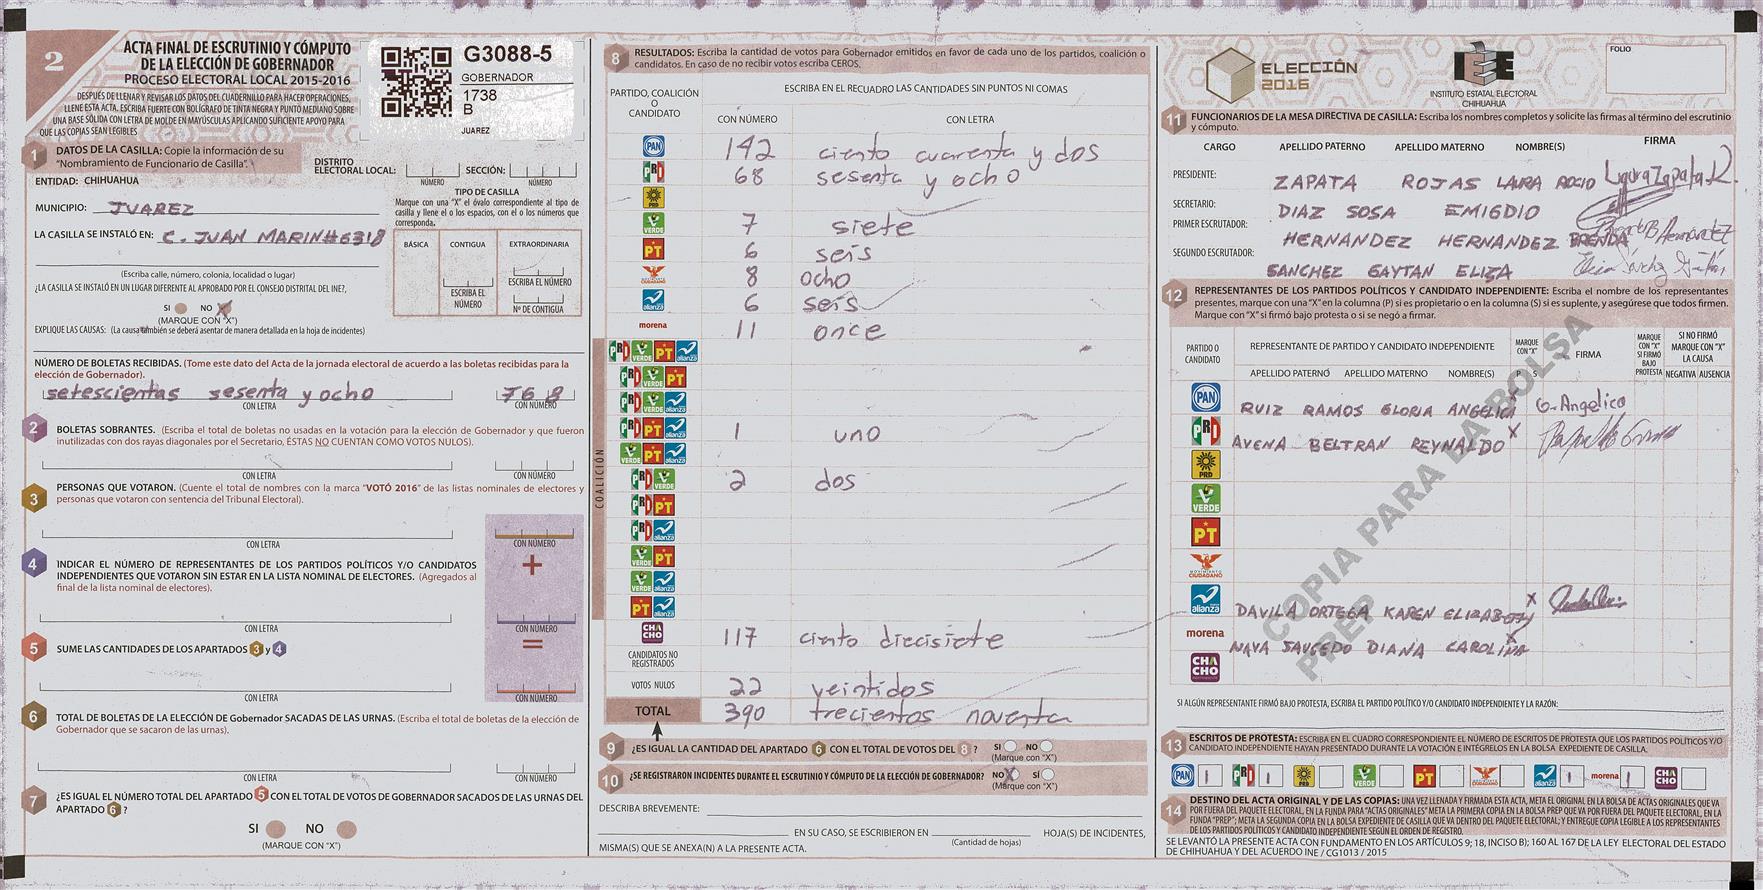 2
ACTA FINAL DE ESCRUTINIO Y CÓMPUTO
DE LA ELECCIÓN DE GOBERNADOR
PROCESO ELECTORAL LOCAL 2015-2016
DESPUÉS DE LLENAR Y REVISAR LOS DATOS DEL CUADERNILLO PARA HACER OPERACIONES,
LLENE ESTA ACTA. ESCRIBA FUERTE CON BOLÍGRAFO DE TINTA NEGRA Y PUNTO MEDIANO SOBRE
UNA BASE SÓLIDA CON LETRA DE MOLDE EN MAYÚSCULAS APLICANDO SUFICIENTE APOYO PARA
QUE LAS COPIAS SEAN LEGIBLES
G3088-5
GOBERNADOR
1738
B
JUAREZ
1 DATOS DE LA CASILLA: Copie la información de su
"Nombramiento de Funcionario de Casilla".
DISTRITO ELECTORAL LOCAL: NÚMERO SECCIÓN: NÚMERO
ENTIDAD: CHIHUAHUA
MUNICIPIO: JUAREZ
LA CASILLA SE INSTALÓ EN: C. JUAN MARIN #6318
(Escriba calle, número, colonia, localidad o lugar)
TIPO DE CASILLA
Marque con una "X" el óvalo correspondiente al tipo de
casilla y llene el o los espacios, con el o los números que
corresponda.
BÁSICA CONTIGUA EXTRAORDINARIA
ESCRIBA EL NÚMERO
ESCRIBA EL NÚMERO
Nº DE CONTIGUA
¿LA CASILLA SE INSTALÓ EN UN LUGAR DIFERENTE AL APROBADO POR EL CONSEJO DISTRITAL DEL INE?,
SI NO X
(MARQUE CON "X")
EXPLIQUE LAS CAUSAS: (La causa también se deberá asentar de manera detallada en la hoja de incidentes)
NÚMERO DE BOLETAS RECIBIDAS. (Tome este dato del Acta de la jornada electoral de acuerdo a las boletas recibidas para la
elección de Gobernador).
setescientas sesenta y ocho 768
CON LETRA CON NÚMERO
2 BOLETAS SOBRANTES. (Escriba el total de boletas no usadas en la votación para la elección de Gobernador y que fueron
inutilizadas con dos rayas diagonales por el Secretario, ÉSTAS NO CUENTAN COMO VOTOS NULOS).
CON LETRA CON NÚMERO
3 PERSONAS QUE VOTARON. (Cuente el total de nombres con la marca "VOTÓ 2016" de las listas nominales de electores y
personas que votaron con sentencia del Tribunal Electoral).
CON LETRA CON NÚMERO
+
4 INDICAR EL NÚMERO DE REPRESENTANTES DE LOS PARTIDOS POLÍTICOS Y/O CANDIDATOS
INDEPENDIENTES QUE VOTARON SIN ESTAR EN LA LISTA NOMINAL DE ELECTORES. (Agregados al
final de la lista nominal de electores).
CON LETRA CON NÚMERO
=
5 SUME LAS CANTIDADES DE LOS APARTADOS 3 y 4
CON LETRA CON NÚMERO
6 TOTAL DE BOLETAS DE LA ELECCIÓN DE Gobernador SACADAS DE LAS URNAS. (Escriba el total de boletas de la elección de
Gobernador que se sacaron de las urnas).
CON LETRA CON NÚMERO
7 ¿ES IGUAL EL NÚMERO TOTAL DEL APARTADO 5 CON EL TOTAL DE VOTOS DE GOBERNADOR SACADOS DE LAS URNAS DEL
APARTADO 6?
SI NO
(MARQUE CON "X")
8 RESULTADOS: Escriba la cantidad de votos para Gobernador emitidos en favor de cada uno de los partidos, coalición o
candidatos. En caso de no recibir votos escriba CEROS.
PARTIDO, COALICIÓN O CANDIDATO
ESCRIBA EN EL RECUADRO LAS CANTIDADES SIN PUNTOS NI COMAS
CON NÚMERO CON LETRA
PAN 142 ciento cuarenta y dos
PRD 68 sesenta y ocho
PRD
VERDE 7 siete
PT 6 seis
MOVIMIENTO CIUDADANO 8 ocho
alianza 6 seis
morena 11 once
COALICIÓN
PRD VERDE PT alianza
PRD VERDE PT
PRD VERDE alianza
PRD PT alianza 1 uno
VERDE PT alianza
PRD VERDE 2 dos
PRD PT
PRD alianza
VERDE PT
VERDE alianza
PT alianza
CHACHO 117 ciento diecisiete
CANDIDATOS NO REGISTRADOS
VOTOS NULOS 22 veintidos
TOTAL 390 trecientos noventa
9 ¿ES IGUAL LA CANTIDAD DEL APARTADO 6 CON EL TOTAL DE VOTOS DEL 8? SI NO
(Marque con "X")
10 ¿SE REGISTRARON INCIDENTES DURANTE EL ESCRUTINIO Y CÓMPUTO DE LA ELECCIÓN DE GOBERNADOR? NO X SÍ
(Marque con "X")
DESCRIBA BREVEMENTE:
EN SU CASO, SE ESCRIBIERON EN HOJA(S) DE INCIDENTES,
(Cantidad de hojas)
MISMA(S) QUE SE ANEXA(N) A LA PRESENTE ACTA.
ELECCIÓN 2016
IEE
INSTITUTO ESTATAL ELECTORAL
CHIHUAHUA
FOLIO
11 FUNCIONARIOS DE LA MESA DIRECTIVA DE CASILLA: Escriba los nombres completos y solicite las firmas al término del escrutinio
y cómputo.
CARGO APELLIDO PATERNO APELLIDO MATERNO NOMBRE(S) FIRMA
PRESIDENTE: ZAPATA ROJAS LAURA ROCIO Laura Zapata R.
SECRETARIO: DIAZ SOSA EMIGDIO
PRIMER ESCRUTADOR: HERNANDEZ HERNANDEZ BRENDA
SEGUNDO ESCRUTADOR: SANCHEZ GAYTAN ELIZA
12 REPRESENTANTES DE LOS PARTIDOS POLÍTICOS Y CANDIDATO INDEPENDIENTE: Escriba el nombre de los representantes
presentes, marque con una "X" en la columna (P) si es propietario o en la columna (S) si es suplente, y asegúrese que todos firmen.
Marque con "X" si firmó bajo protesta o si se negó a firmar.
PARTIDO O CANDIDATO
REPRESENTANTE DE PARTIDO Y CANDIDATO INDEPENDIENTE
APELLIDO PATERNO APELLIDO MATERNO NOMBRE(S)
MARQUE CON "X" P S
FIRMA
MARQUE CON "X" SI FIRMÓ BAJO PROTESTA
SI NO FIRMÓ MARQUE CON "X" LA CAUSA
NEGATIVA AUSENCIA
PAN RUIZ RAMOS GLORIA ANGELICA X G. Angelica
PRD AVENA BELTRAN REYNALDO X
PRD
VERDE
PT
MOVIMIENTO CIUDADANO
alianza DAVILA ORTEGA KAREN ELIZABETH X
morena NAVA SAUCEDO DIANA CAROLINA
CHACHO
COPIA PARA LA BOLSA
PREP
SI ALGÚN REPRESENTANTE FIRMÓ BAJO PROTESTA, ESCRIBA EL PARTIDO POLÍTICO Y/O CANDIDATO INDEPENDIENTE Y LA RAZÓN:
13 ESCRITOS DE PROTESTA: ESCRIBA EN EL CUADRO CORRESPONDIENTE EL NÚMERO DE ESCRITOS DE PROTESTA QUE LOS PARTIDOS POLÍTICOS Y/O
CANDIDATO INDEPENDIENTE HAYAN PRESENTADO DURANTE LA VOTACIÓN E INTÉGRELOS EN LA BOLSA EXPEDIENTE DE CASILLA.
PAN 1 PRD 1 PRD VERDE PT alianza 1 morena 1 CHACHO
14 DESTINO DEL ACTA ORIGINAL Y DE LAS COPIAS: UNA VEZ LLENADA Y FIRMADA ESTA ACTA, META EL ORIGINAL EN LA BOLSA DE ACTAS ORIGINALES QUE VA
POR FUERA DEL PAQUETE ELECTORAL, EN LA FUNDA PARA "ACTAS ORIGINALES" META LA PRIMERA COPIA EN LA BOLSA PREP QUE VA POR FUERA DEL PAQUETE ELECTORAL, EN LA
FUNDA "PREP"; META LA SEGUNDA COPIA EN LA BOLSA EXPEDIENTE DE CASILLA QUE VA DENTRO DEL PAQUETE ELECTORAL; Y ENTREGUE COPIA LEGIBLE A LOS REPRESENTANTES
DE LOS PARTIDOS POLÍTICOS Y CANDIDATO INDEPENDIENTE SEGÚN EL ORDEN DE REGISTRO.
SE LEVANTÓ LA PRESENTE ACTA CON FUNDAMENTO EN LOS ARTÍCULOS 9; 18, INCISO B); 160 AL 167 DE LA LEY ELECTORAL DEL ESTADO
DE CHIHUAHUA Y DEL ACUERDO INE / CG1013 / 2015